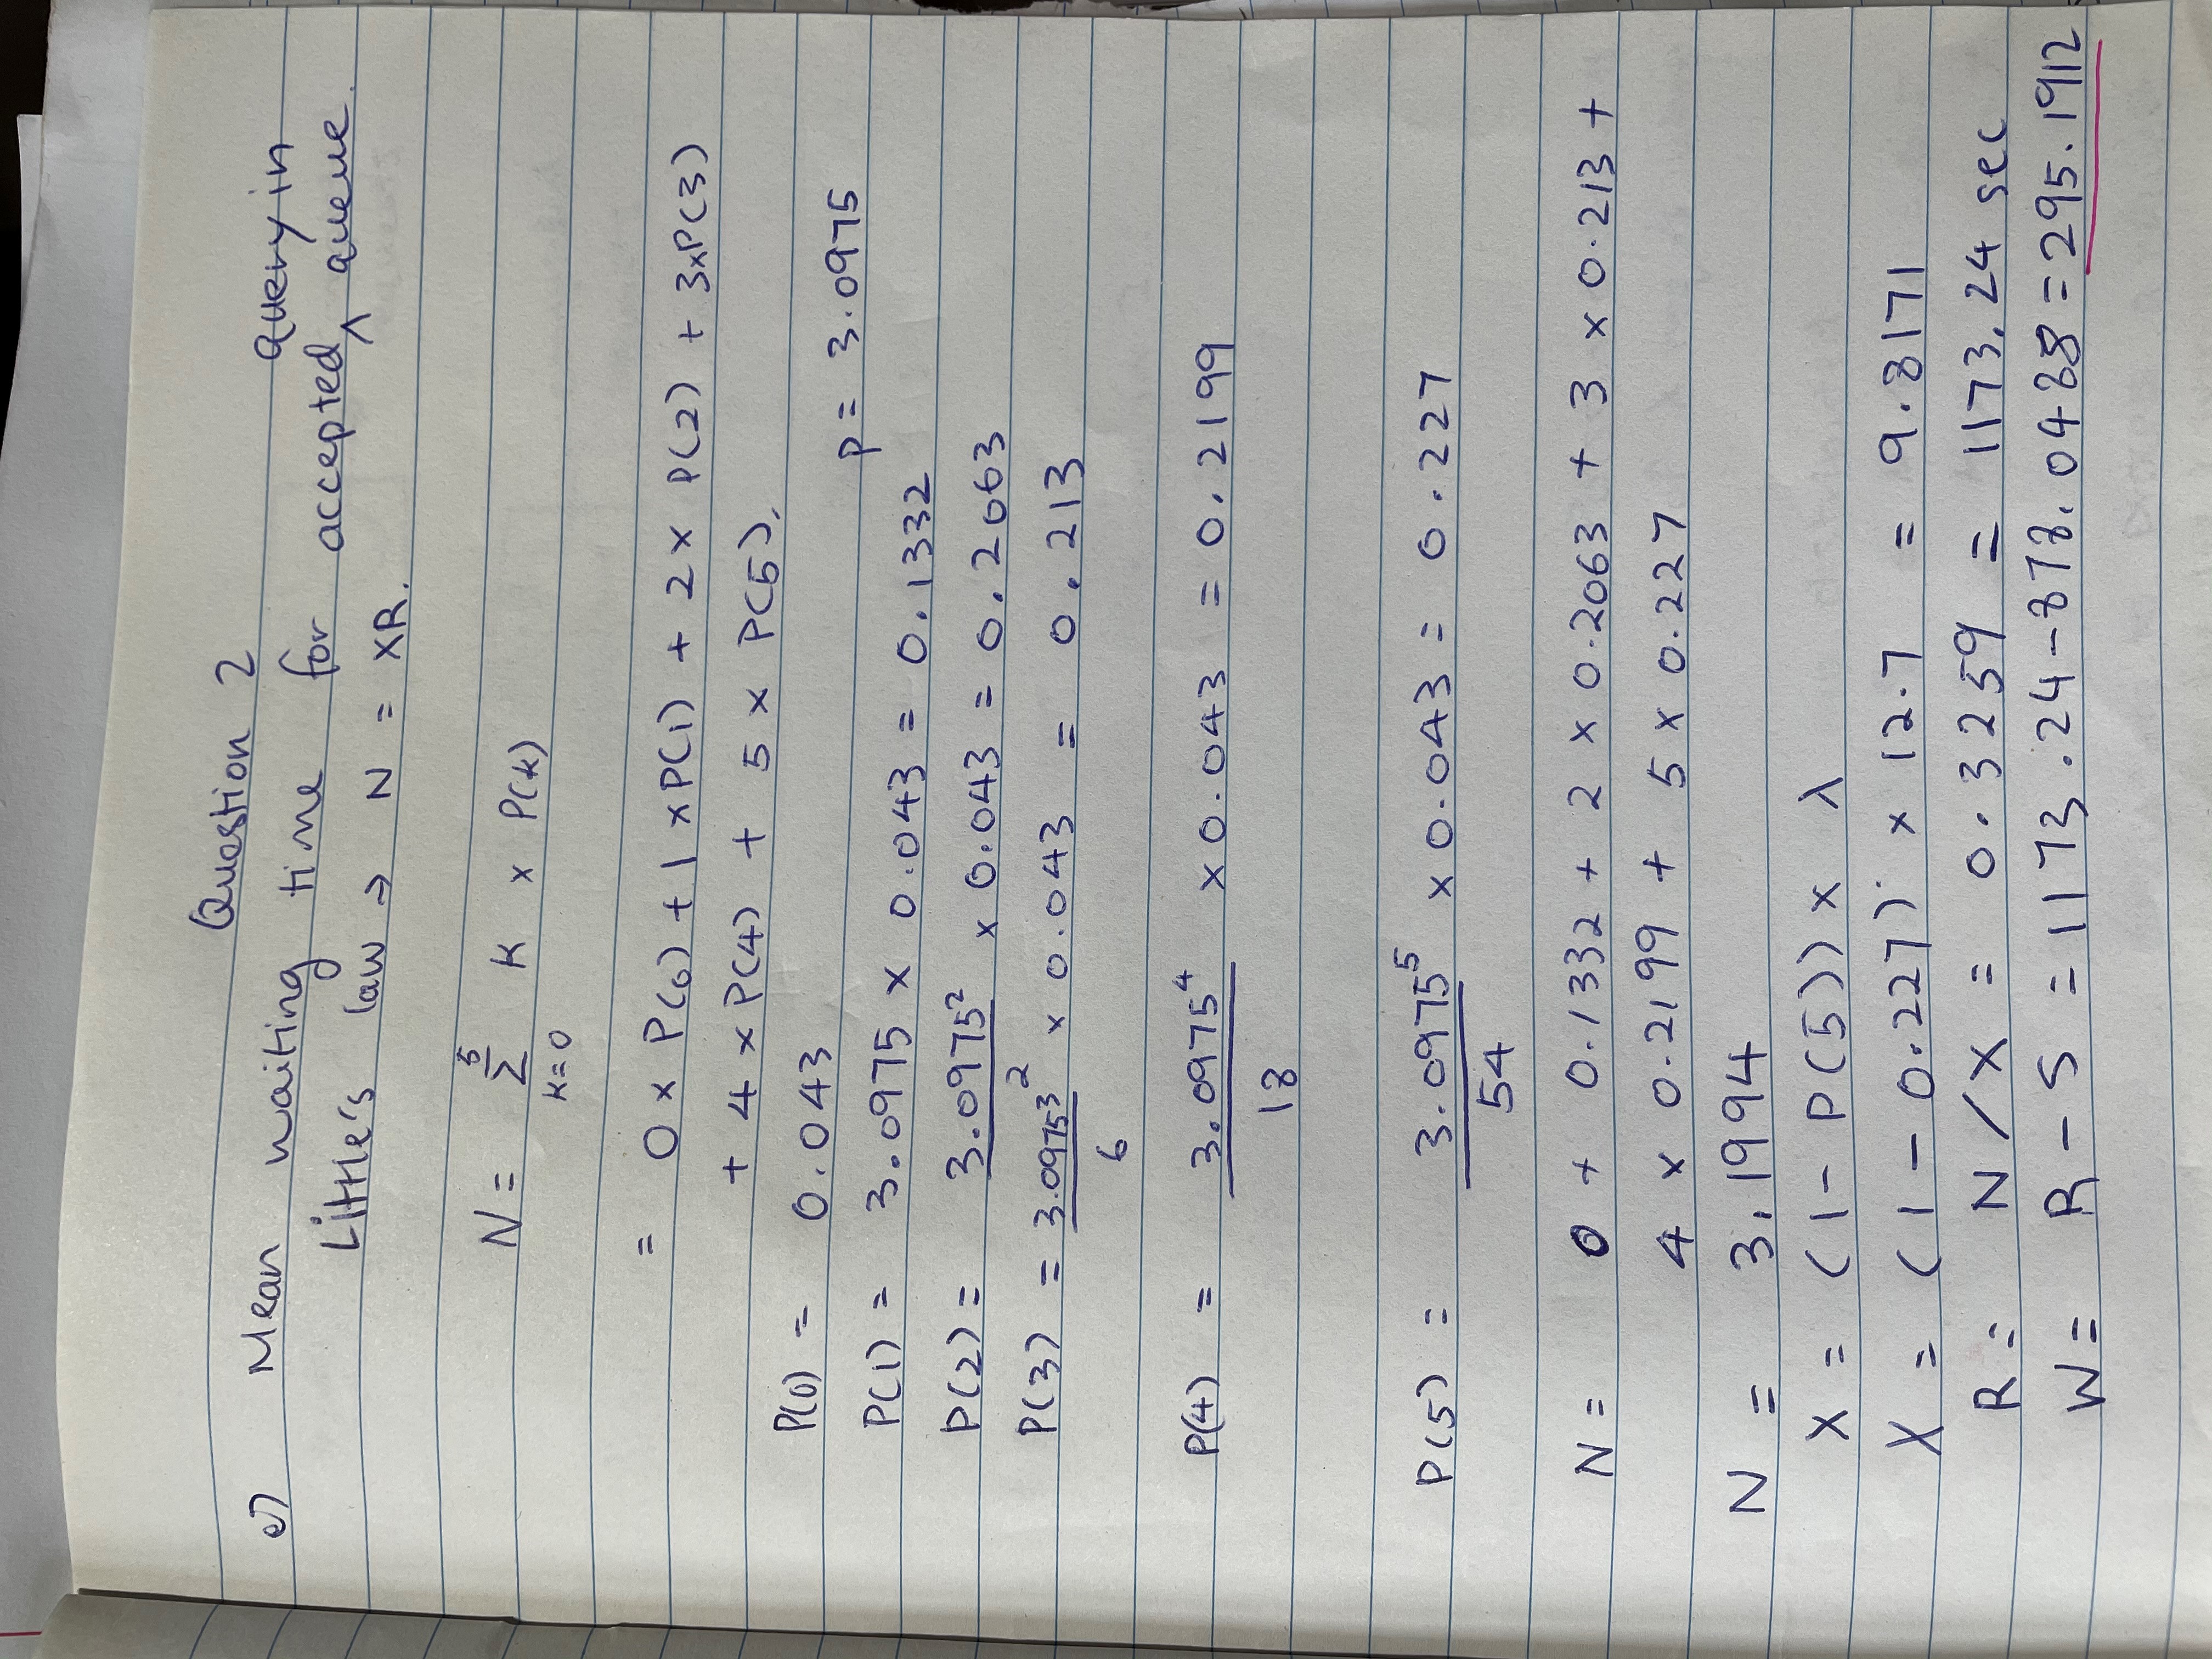 Question 2
e) Mean waiting time for accepted ^ query in queue.
Little's law ⇒ N = XR.
N = 5 Σ k=0 K × P(k)
= 0 × P(0) + 1 × P(1) + 2 × P(2) + 3×P(3)
+ 4 × P(4) + 5 × P(5).
P(0) = 0.043 p = 3.0975
P(1) = 3.0975 × 0.043 = 0.1332
P(2) = 3.0975² / 2 × 0.043 = 0.2063
P(3) = 3.0975³ / 6 × 0.043 = 0.213
P(4) = 3.0975⁴ / 18 × 0.043 = 0.2199
P(5) = 3.0975⁵ / 54 × 0.043 = 0.227
N = 0 + 0.1332 + 2 × 0.2063 + 3 × 0.213 +
4 × 0.2199 + 5 × 0.227
N = 3.1994
X = (1 - P(5)) × λ
X = (1 - 0.227) × 12.7 = 9.8171
R = N/X = 0.3259 = 1173.24 sec
W = R - S = 1173.24 - 878.0488 = 295.1912